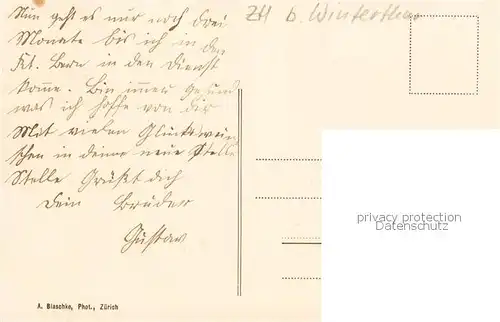 Nun geht es nur noch drei
Monate bis ich in den
Kt. Bern in den Dienst
komme. Bin immer gesund
was ich hoffe von dir
Mit vielen Glückwün-
schen in deine neue Stelle
Stelle Grüßt dich
Dein Bruder
Gustav
ZH b. Winterthur
privacy protection
Datenschutz
A. Blaschke, Phot., Zürich